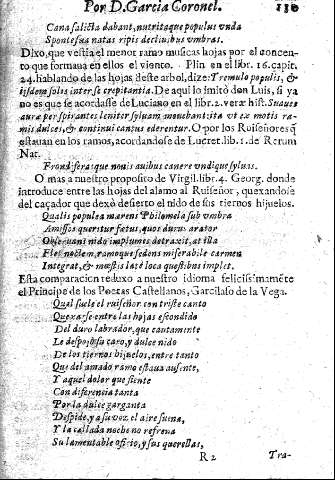 Por D. Garcia Coronel. 130
Cana salicta dabant, nutritaque populus vnda
Sponte sua natas ripis decliuibus vmbras.
Dixo, que vestia el menor ramo muscas hojas por el concen-
to que formaua en ellos el viento. Plin en el libr. 16. capit.
24. hablando de las hojas deste arbol, dize: Tremulo populis, &
iisdem solis inter se crepitantia. De aqui lo imitò don Luis, si ya
no es que se acordasse de Luciano en el libr. 2. veræ hist. Suaues
auræ perspirantes leniter syluam mouebant: ita vt ex motis ra-
mis dulces, & continui cantus ederentur. O por los Ruiseñores q̃
estauan en los ramos, acordandose de Lucret. lib. 1. de Rerum
Nat.
Frondiferasque nouis auibus canere vndique syluas.
O mas a nuestro proposito de Virgil. libr. 4. Georg. donde
introduce entre las hojas del alamo al Ruiseñor, quexandose
del caçador que dexò desierto el nido de sus tiernos hijuelos.
Qualis populea mœrens Philomela sub vmbra
Amissos queritur fœtus, quos durus arator
Obseruans nido implumes detraxit, at illa
Flet noctem, ramoque sedens miserabile carmen
Integrat, & mœstis latè loca questibus implet.
Esta comparacion reduxo a nuestro idioma felicissimamẽte
el Principe de los Poetas Castellanos, Garcilaso de la Vega.
Qual suele el ruiseñor con triste canto
Quexarse entre las hojas escondido
Del duro labrador, que cautamente
Le despojò su caro, y dulce nido
De los tiernos hijuelos, entre tanto
Que del amado ramo estaua ausente,
Y aquel dolor que siente
Con diferencia tanta
Por la dulce garganta
Despide, y a su voz el aire suena,
Y la callada noche no refrena
Su lamentable oficio, y sus querellas,
R 2 Tra-